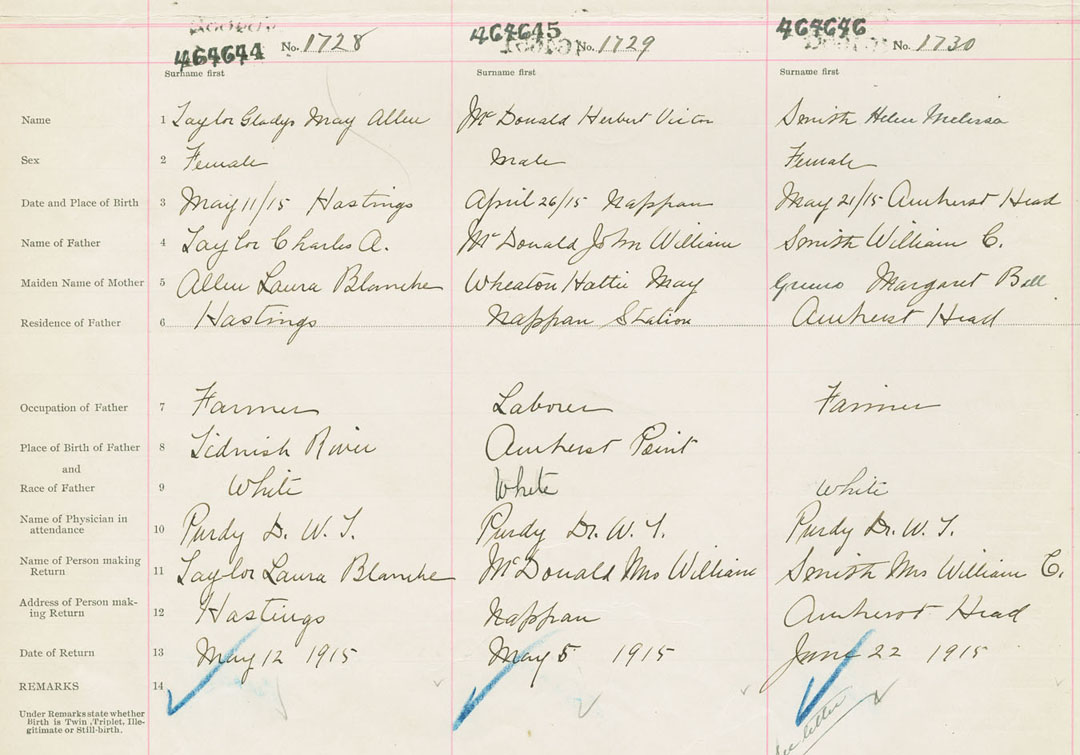 464644 No. 1728 464645 No. 1729 464646 No. 1730
Surname first Surname first Surname first
Name 1 Taylor Gladys May Allen McDonald Herbert Victor Smith Helen Melissa
Sex 2 Female Male Female
Date and Place of Birth 3 May 11/15 Hastings April 26/15 Nappan May 21/15 Amherst Head
Name of Father 4 Taylor Charles A. McDonald John William Smith William C.
Maiden Name of Mother 5 Allen Laura Blanche Wheaton Hattie May Margaret Bell
Residence of Father 6 Hastings Nappan Station Amherst Head
Occupation of Father 7 Farmer Laborer Farmer
Place of Birth of Father 8 Tidnish River Amherst Point
and
Race of Father 9 White White White
Name of Physician in
attendance 10 Purdy D. W. T. Purdy Dr. W. T. Purdy Dr. W. T.
Name of Person making
Return 11 Taylor Laura Blanche McDonald Mrs William Smith Mrs William C.
Address of Person mak-
ing Return 12 Hastings Nappan Amherst Head
Date of Return 13 May 12 1915 May 5 1915 June 22 1915
REMARKS 14
Under Remarks state whether
Birth is Twin, Triplet, Ille-
gitimate or Still-birth.
see letter